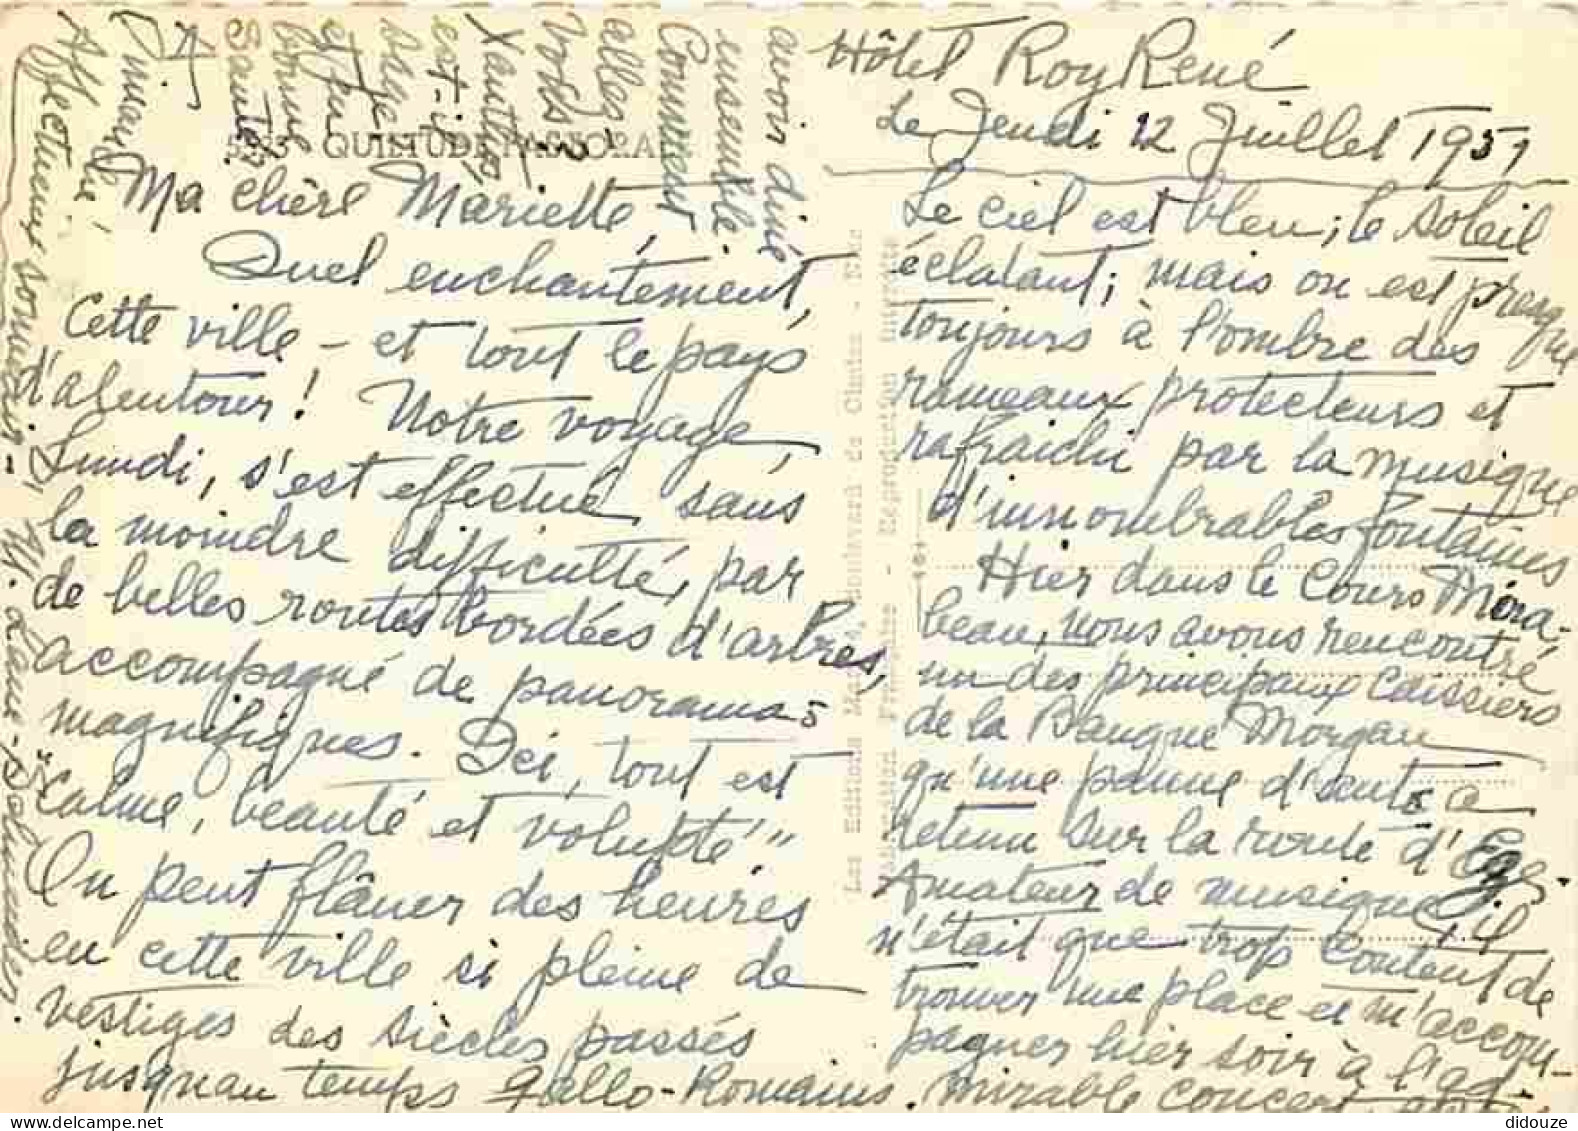 Hôtel Roy René
Le Jeudi 12 Juillet 1951
5323 QUIETUDE PASTORALE
Ma chère Mariette,
Quel enchantement,
cette ville - et tout le pays
d'alentour ! Notre voyage,
Lundi, s'est effectué, sans
la moindre difficulté, par
de belles routes bordées d'arbres,
accompagné de panoramas
magnifiques. Ici, tout est
"calme, beauté et volupté"
On peut flâner des heures
en cette ville si pleine de
vestiges des siècles passés
jusqu'au temps gallo-Romains.
Le ciel est bleu; le soleil
éclatant; mais on est presque
toujours à l'ombre des
rameaux protecteurs et
rafraichi par la musique
d'innombrables fontaines
Hier dans le Cours Mira-
beau, nous avons rencontré
un des principaux caissiers
de la Banque Morgan
qu'une panne d'auto a
retenu sur la route d'
Amateur de musique, il
n'était que trop content de
trouver une place et m'accom-
pagner hier soir à l'ad-
mirable concert
avoir dîné
ensemble.
Comment
allez-
vous
est-il
sage
et en
bonne
Santé?
Amitiés
Affectueux souvenir
Les Editions Mar, Boulevard de Cimiez - Nice
Fabrication Française - Reproduction interdite